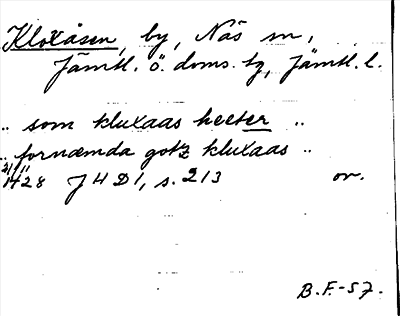 Kloxåsen, by, Näs sn,
Jämtl. ö. doms. tg, Jämtl. l.
.. som kluxaas heeter ..
.. fornæmda gotz kluxaas ..
21/11 1428 JHD1, s. 213 or.
B.F.-57.